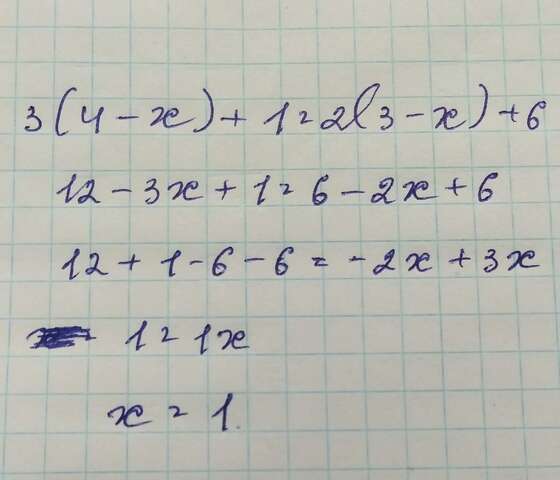 3(4-x)+1=2(3-x)+6
12-3x+1=6-2x+6
12+1-6-6=-2x+3x
1=1x
x=1.